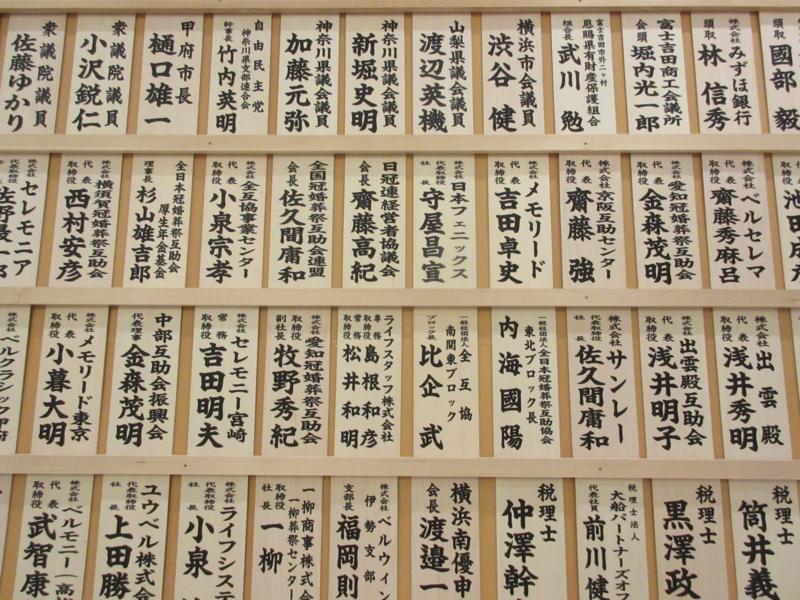 頭取
國部 毅
株式会社みずほ銀行
頭取
林 信秀
富士吉田商工会議所
会頭
堀内光一郎
富士吉田市外二ヶ村
恩賜県有財産保護組合
組合長
武川 勉
横浜市会議員
渋谷 健
山梨県議会議員
渡辺英機
神奈川県議会議員
新堀史明
神奈川県議会議員
加藤元弥
自由民主党
神奈川県支部連合会
幹事長
竹内英明
甲府市長
樋口雄一
衆議院議員
小沢鋭仁
衆議院議員
佐藤ゆかり
池田
株式会社ベルセレマ
代表
取締役
齋藤秀麻呂
株式会社愛知冠婚葬祭互助会
代表
取締役
金森茂明
株式会社京阪互助センター
代表
取締役
齋藤 強
株式会社メモリード
代表
取締役
吉田卓史
株式会社日本フェニックス
代表取締役
社長
守屋昌宣
日冠連経営者協議会
会長
齋藤高紀
全国冠婚葬祭互助会連盟
会長
佐久間庸和
株式会社全互協事業センター
代表
取締役
小泉宗孝
全日本冠婚葬祭互助会
厚生年金基金
理事長
杉山雄吉郎
株式会社横須賀冠婚葬祭互助会
代表
取締役
西村安彦
株式会社セレモニア
代表
取締役
株式会社出雲殿
代表
取締役
浅井秀明
株式会社出雲殿互助会
代表
取締役
浅井明子
株式会社サンレー
代表取締役
社長
佐久間庸和
一般社団法人全日本冠婚葬祭互助協会
東北ブロック長
内海國陽
一般社団法人全互協
南関東ブロック
ブロック長
比企 武
ライフスタッフ株式会社
専務
取締役
島根和彦
常務
取締役
松井和明
株式会社愛知冠婚葬祭互助会
取締役
副社長
牧野秀紀
株式会社セレモニー宮崎
常務
取締役
吉田明夫
中部互助会振興会
代表理事
金森茂明
株式会社メモリード東京
代表
取締役
小暮大明
株式会社ベルクラシック甲府
税理士
筒井義
税理士
黒澤政
税理士法人
大船パートナーズオフ
代表社員
前川健
税理士
仲澤幹
横浜南優申
会長
渡邉一
株式会社ベルウイン
伊勢支部
支部長
福岡則
一柳商事株式会
一柳葬祭センター
取締役
社長
一柳
株式会社ライフシステ
代表取締役
社長
小泉
ユウベル株式会
代表取締役
社長
上田勝
株式会社ベルモニー(高
代表
取締役
武智康